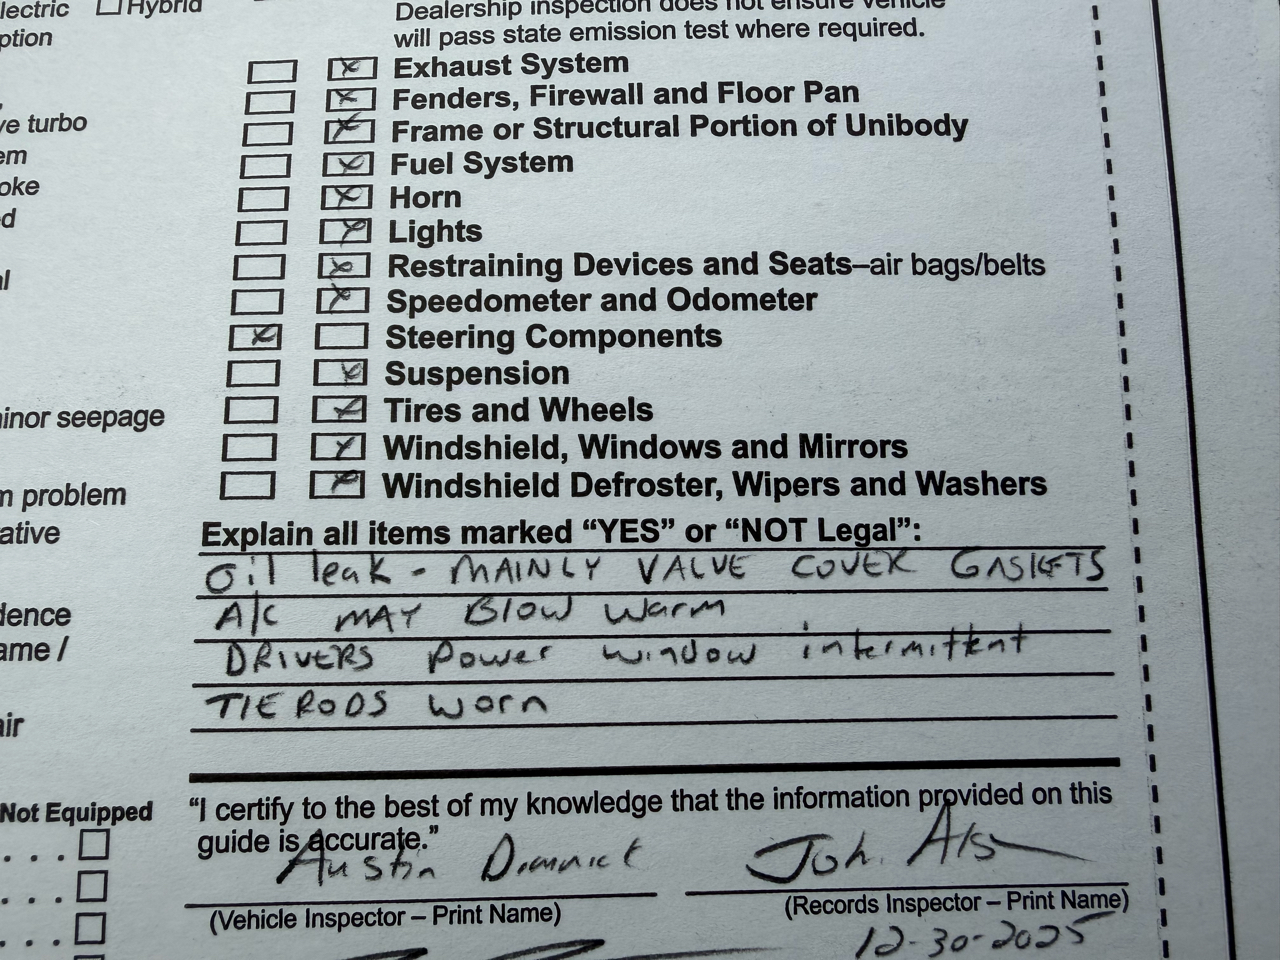 lectric ☐ Hybrid
Dealership inspection does not ensure vehicle
ption
will pass state emission test where required.
☐ ☒ Exhaust System
☐ ☒ Fenders, Firewall and Floor Pan
ve turbo
☐ ☒ Frame or Structural Portion of Unibody
em
☐ ☒ Fuel System
oke
☐ ☒ Horn
d
☐ ☒ Lights
☐ ☒ Restraining Devices and Seats–air bags/belts
al
☐ ☒ Speedometer and Odometer
☒ ☐ Steering Components
☐ ☒ Suspension
inor seepage
☐ ☒ Tires and Wheels
☐ ☒ Windshield, Windows and Mirrors
m problem
☐ ☒ Windshield Defroster, Wipers and Washers
ative
Explain all items marked “YES” or “NOT Legal”:
Oil leak - MAINLY VALVE COVER GASKETS
dence
A/C MAY Blow warm
ame /
DRIVERS Power window intermittent
TIE RODS worn
air
Not Equipped
“I certify to the best of my knowledge that the information provided on this
guide is accurate.”
. . . ☐
Austin
. . . ☐
(Vehicle Inspector – Print Name)
(Records Inspector – Print Name)
. . . ☐
12-30-2025